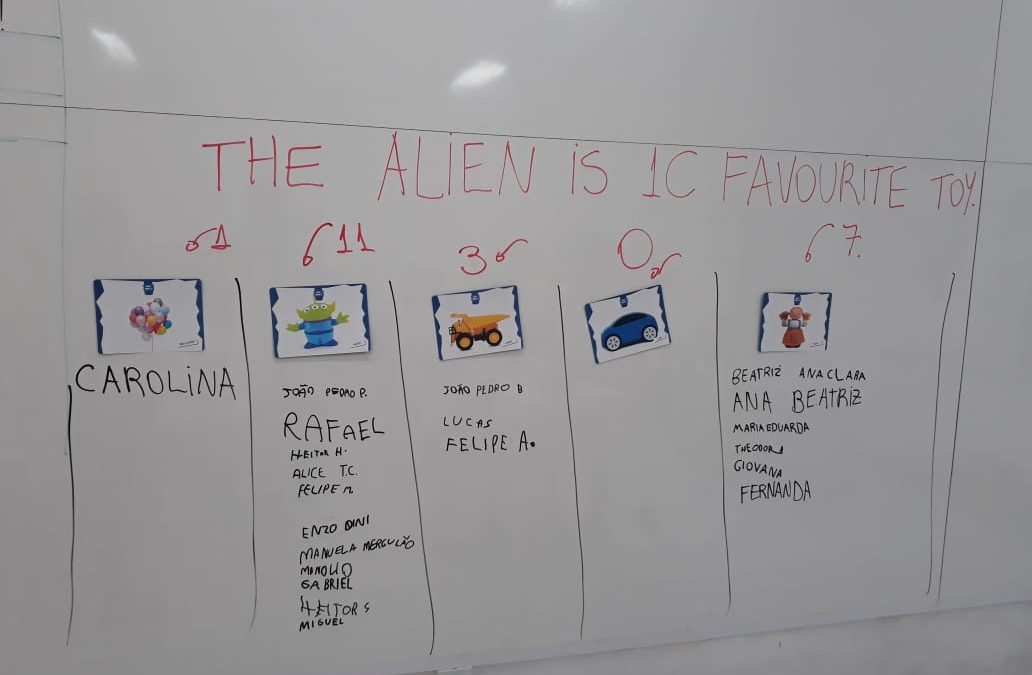 THE ALIEN IS 1C FAVOURITE TOY.
1
11
3
0
7.
CAROLINA
JOÃO PEDRO P.
RAFAEL
HEITOR H.
ALICE T.C.
FELIPE M
ENZO DINI
MANUELA MERGULÃO
GABRIEL
HEITOR S
MIGUEL
JOÃO PEDRO B
LUCAS
FELIPE A.
BEATRIZ ANA CLARA
ANA BEATRIZ
MARIA EDUARDA
THEODORA
GIOVANA
FERNANDA